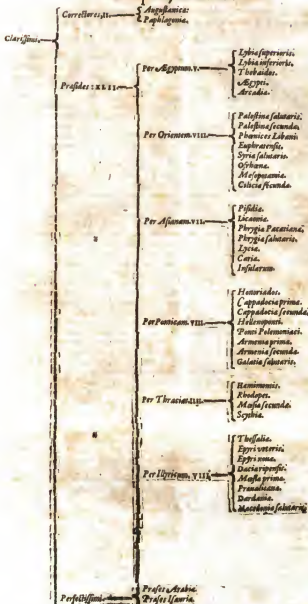 Correctores, II.
Augustanicæ.
Paphlagoniæ.
Clarissimi.
Præsides: XLII
Per Ægyptum. V.
Lybiæ superioris.
Lybiæ inferioris.
Thebaidos.
Ægypti.
Arcadiæ.
Per Orientem. VIII.
Palestinæ salutaris.
Palestinæ secundæ.
Phœnices Libani.
Euphratensis.
Syriæ salutaris.
Osrhœnæ.
Mesopotamiæ.
Ciliciæ secundæ.
Per Asianam. VII.
Pisidiæ.
Licaoniæ.
Phrygiæ Pacatianæ.
Phrygiæ salutaris.
Lyciæ.
Cariæ.
Insularum.
Per Ponticam. VIII.
Honoriados.
Cappadociæ primæ.
Cappadociæ secundæ.
Hellenoponti.
Ponti Polemoniaci.
Armeniæ primæ.
Armeniæ secundæ.
Galatiæ salutaris.
Per Thracias. IIII.
Hæmimontis.
Rhodopes.
Mœsiæ secundæ.
Scythiæ.
Per Illyricum. VIII.
Thessaliæ.
Epyri veteris.
Epyri novæ.
Daciæ ripensis.
Mœsiæ primæ.
Prævalitanæ.
Dardaniæ.
Macedoniæ salutaris.
Perfectissimi.
Præses Arabiæ.
Præses Isauriæ.